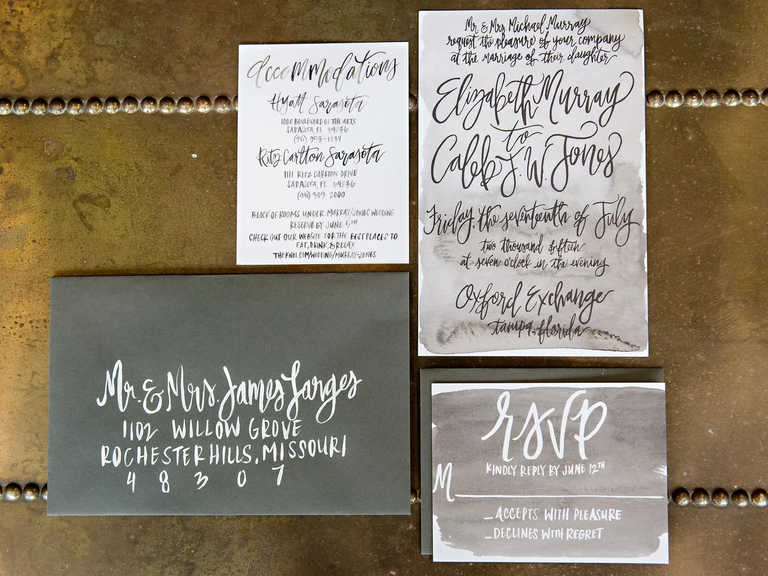 accommodations
Hyatt Sarasota
1000 BOULEVARD OF THE ARTS
SARASOTA, FL 34236
(941) 953-1234
Ritz Carlton Sarasota
1111 RITZ CARLTON DRIVE
SARASOTA, FL 34236
(941) 309-2000
BLOCK OF ROOMS UNDER MURRAY/JONES WEDDING
RESERVE BY JUNE 5TH
CHECK OUT OUR WEBSITE FOR THE BEST PLACES TO
EAT, DRINK, & RELAX
THEKNOT.COM/WEDDING/MURRAY-JONES
Mr. & Mrs. Michael Murray
request the pleasure of your company
at the marriage of their daughter
Elizabeth Murray
to
Caleb J.W. Jones
Friday, the seventeenth of July
two thousand fifteen
at seven o'clock in the evening
Oxford Exchange
tampa, florida
Mr. & Mrs. James Farges
1102 WILLOW GROVE
ROCHESTER HILLS, MISSOURI
4 8 3 0 7
rsvp
KINDLY REPLY BY JUNE 12TH
M
_ACCEPTS WITH PLEASURE
_DECLINES WITH REGRET